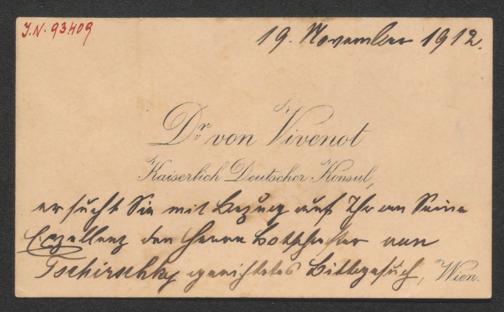 J.N. 93409
19. November 1912.
Dr. von Vivenot
Kaiserlich Deutscher Konsul,
ersucht Sie mit Bezug auf Ihr an Seine
Exzellenz den Herrn Botschafter von
Tschirschky gerichtetes Bittgesuch, Wien.